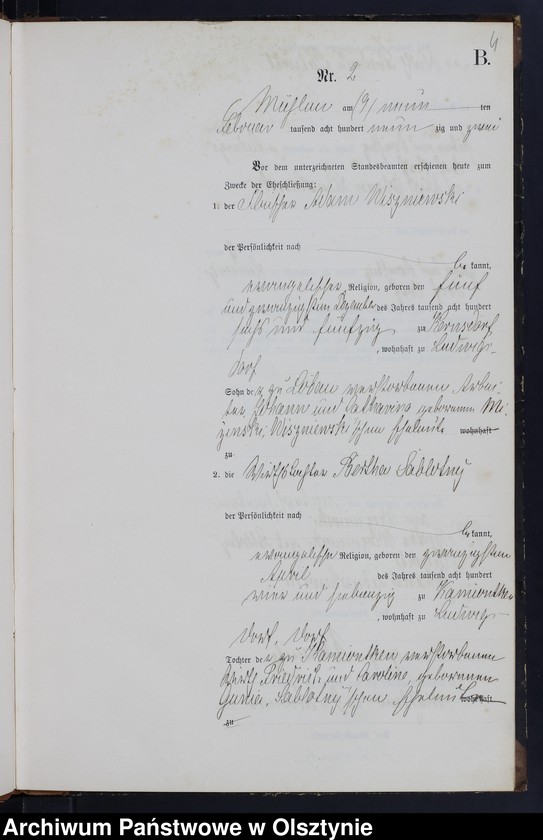 4
B.
Nr. 2
Mühlen am (9) neun ten
Februar tausend acht hundert neun zig und zwei
Vor dem unterzeichneten Standesbeamten erschienen heute zum
Zwecke der Eheschließung:
1. der Adam Wiszniewski
der Persönlichkeit nach
be kannt,
evangelischer Religion, geboren den fünf
und zwanzigsten Dezember des Jahres tausend acht hundert
sechs und fünfzig zu Kernsdorf
, wohnhaft zu Ludwigs-
dorf
Sohn der zu Löbau verstorbenen Arbei-
ter Johann und Catharina geborenen
Wiszniewski'schen Eheleute wohnhaft
zu
2. die Wirthstochter Bertha Sablotny
der Persönlichkeit nach
be kannt,
evangelische Religion, geboren den zwanzigsten
April des Jahres tausend acht hundert
vier und siebenzig zu Kamiontken
, wohnhaft zu Ludwigs-
dorf, dorf
Tochter der zu Kamiontken verstorbenen
Wirth Friedrich und Caroline, geborenen
Sablotny'schen Eheleute wohnhaft
zu
Archiwum Państwowe w Olsztynie